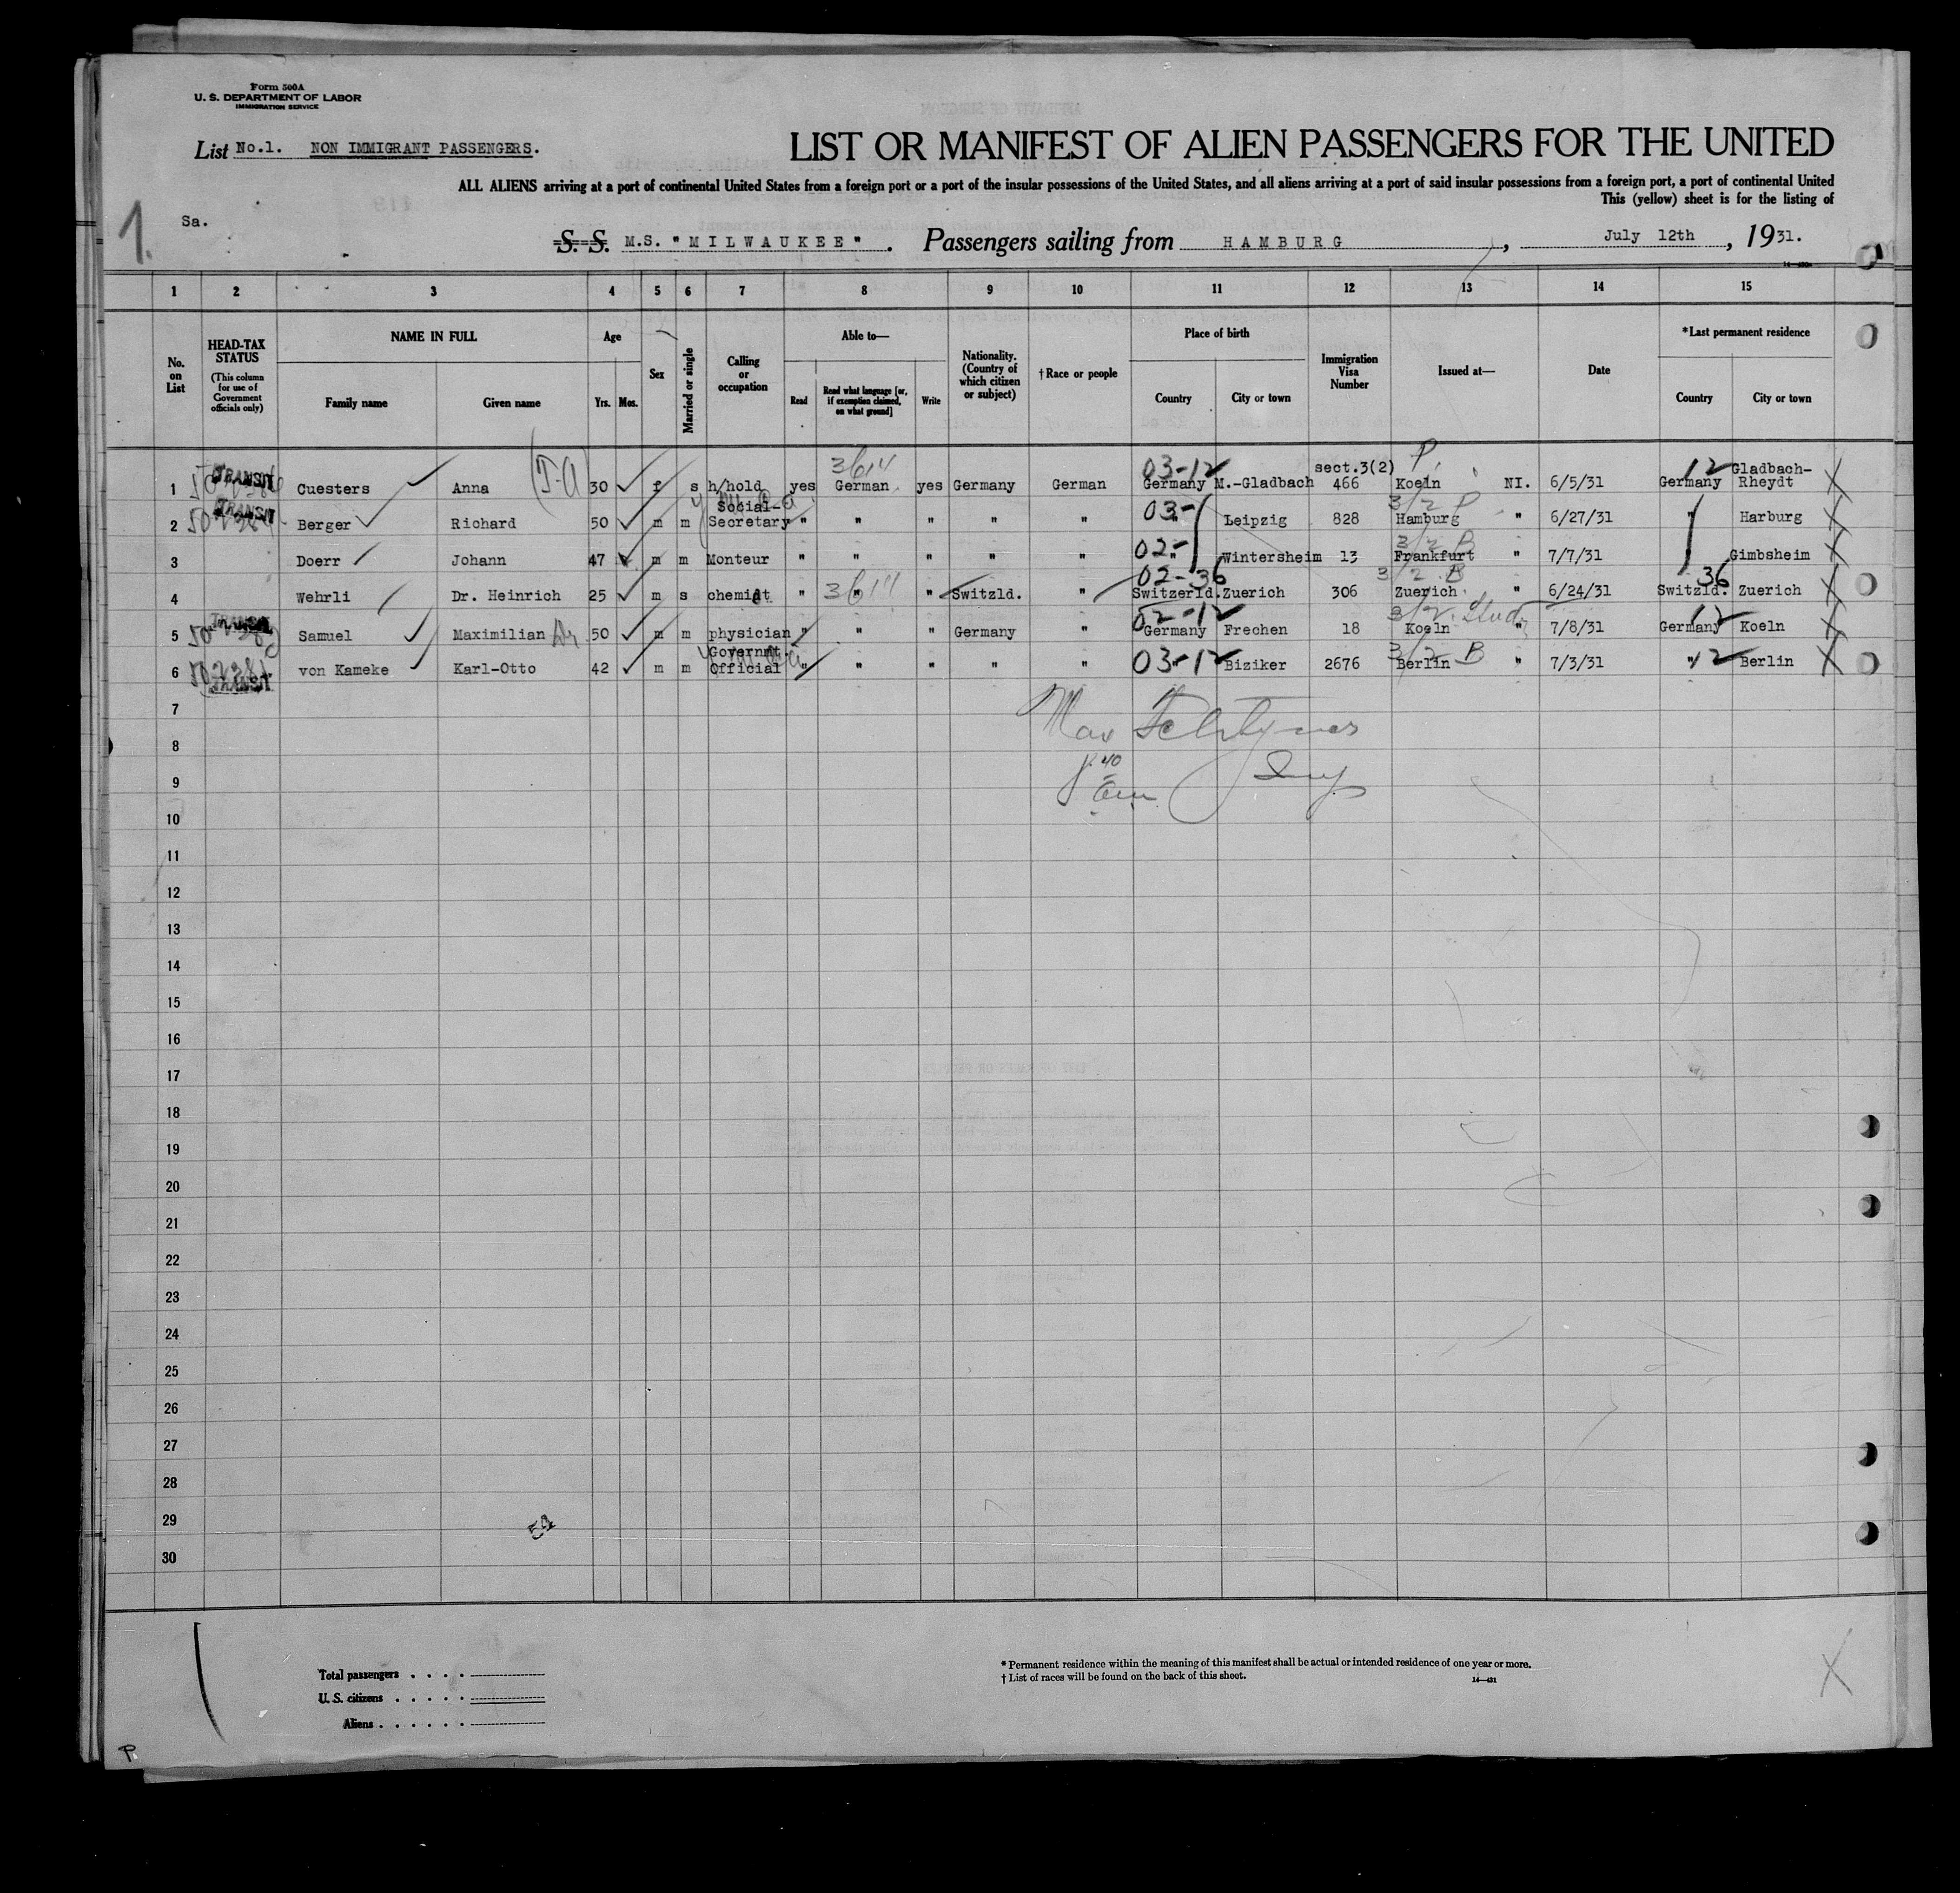 Form 500A
U. S. DEPARTMENT OF LABOR
IMMIGRATION SERVICE
List No.1. NON IMMIGRANT PASSENGERS.
LIST OR MANIFEST OF ALIEN PASSENGERS FOR THE UNITED
ALL ALIENS arriving at a port of continental United States from a foreign port or a port of the insular possessions of the United States, and all aliens arriving at a port of said insular possessions from a foreign port, a port of continental United
This (yellow) sheet is for the listing of
1. Sa.
S. S. M.S. "MILWAUKEE". Passengers sailing from HAMBURG, July 12th, 1931.
1 2 3 4 5 6 7 8 9 10 11 12 13 14 15
No. on List
HEAD-TAX STATUS (This column for use of Government officials only)
NAME IN FULL
Family name Given name
Age
Yrs. Mos.
Sex
Married or single
Calling or occupation
Able to—
Read Read what language [or, if exemption claimed, on what ground] Write
Nationality. (Country of which citizen or subject)
†Race or people
Place of birth
Country City or town
Immigration Visa Number
Issued at—
Date
*Last permanent residence
Country City or town
1 TRANSIT Cuesters Anna 30 f s h/hold yes German yes Germany German 03-12 Germany M.-Gladbach sect.3(2) 466 P. Koeln NI. 6/5/31 12 Germany Gladbach-Rheydt X
2 TRANSIT Berger Richard 50 m m Social-Secretary " " " " " 03- " Leipzig 828 3/2 P Hamburg " 6/27/31 " Harburg X
3 Doerr Johann 47 m m Monteur " " " " " 02- " Wintersheim 13 3/2 B Frankfurt " 7/7/31 Gimbsheim X
4 Wehrli Dr. Heinrich 25 m s chemist " " " Switzld. " 02-36 Switzerld. Zuerich 306 3/2 B Zuerich " 6/24/31 36 Switzld. Zuerich X
5 TRANSIT Samuel Maximilian Dr 50 m m physician " " " Germany " 02-12 Germany Frechen 18 3/2 Stud Koeln " 7/8/31 12 Germany Koeln X
6 TRANSIT von Kameke Karl-Otto 42 m m Governmt. Official " " " " " 03-12 Biziker 2676 3/2 B Berlin " 7/3/31 " 12 Berlin X
7
8
9
10
11
12
13
14
15
16
17
18
19
20
21
22
23
24
25
26
27
28
29
30
54
Total passengers . . . .
U. S. citizens . . . . .
Aliens . . . . . .
* Permanent residence within the meaning of this manifest shall be actual or intended residence of one year or more.
† List of races will be found on the back of this sheet.
14—431
X
P